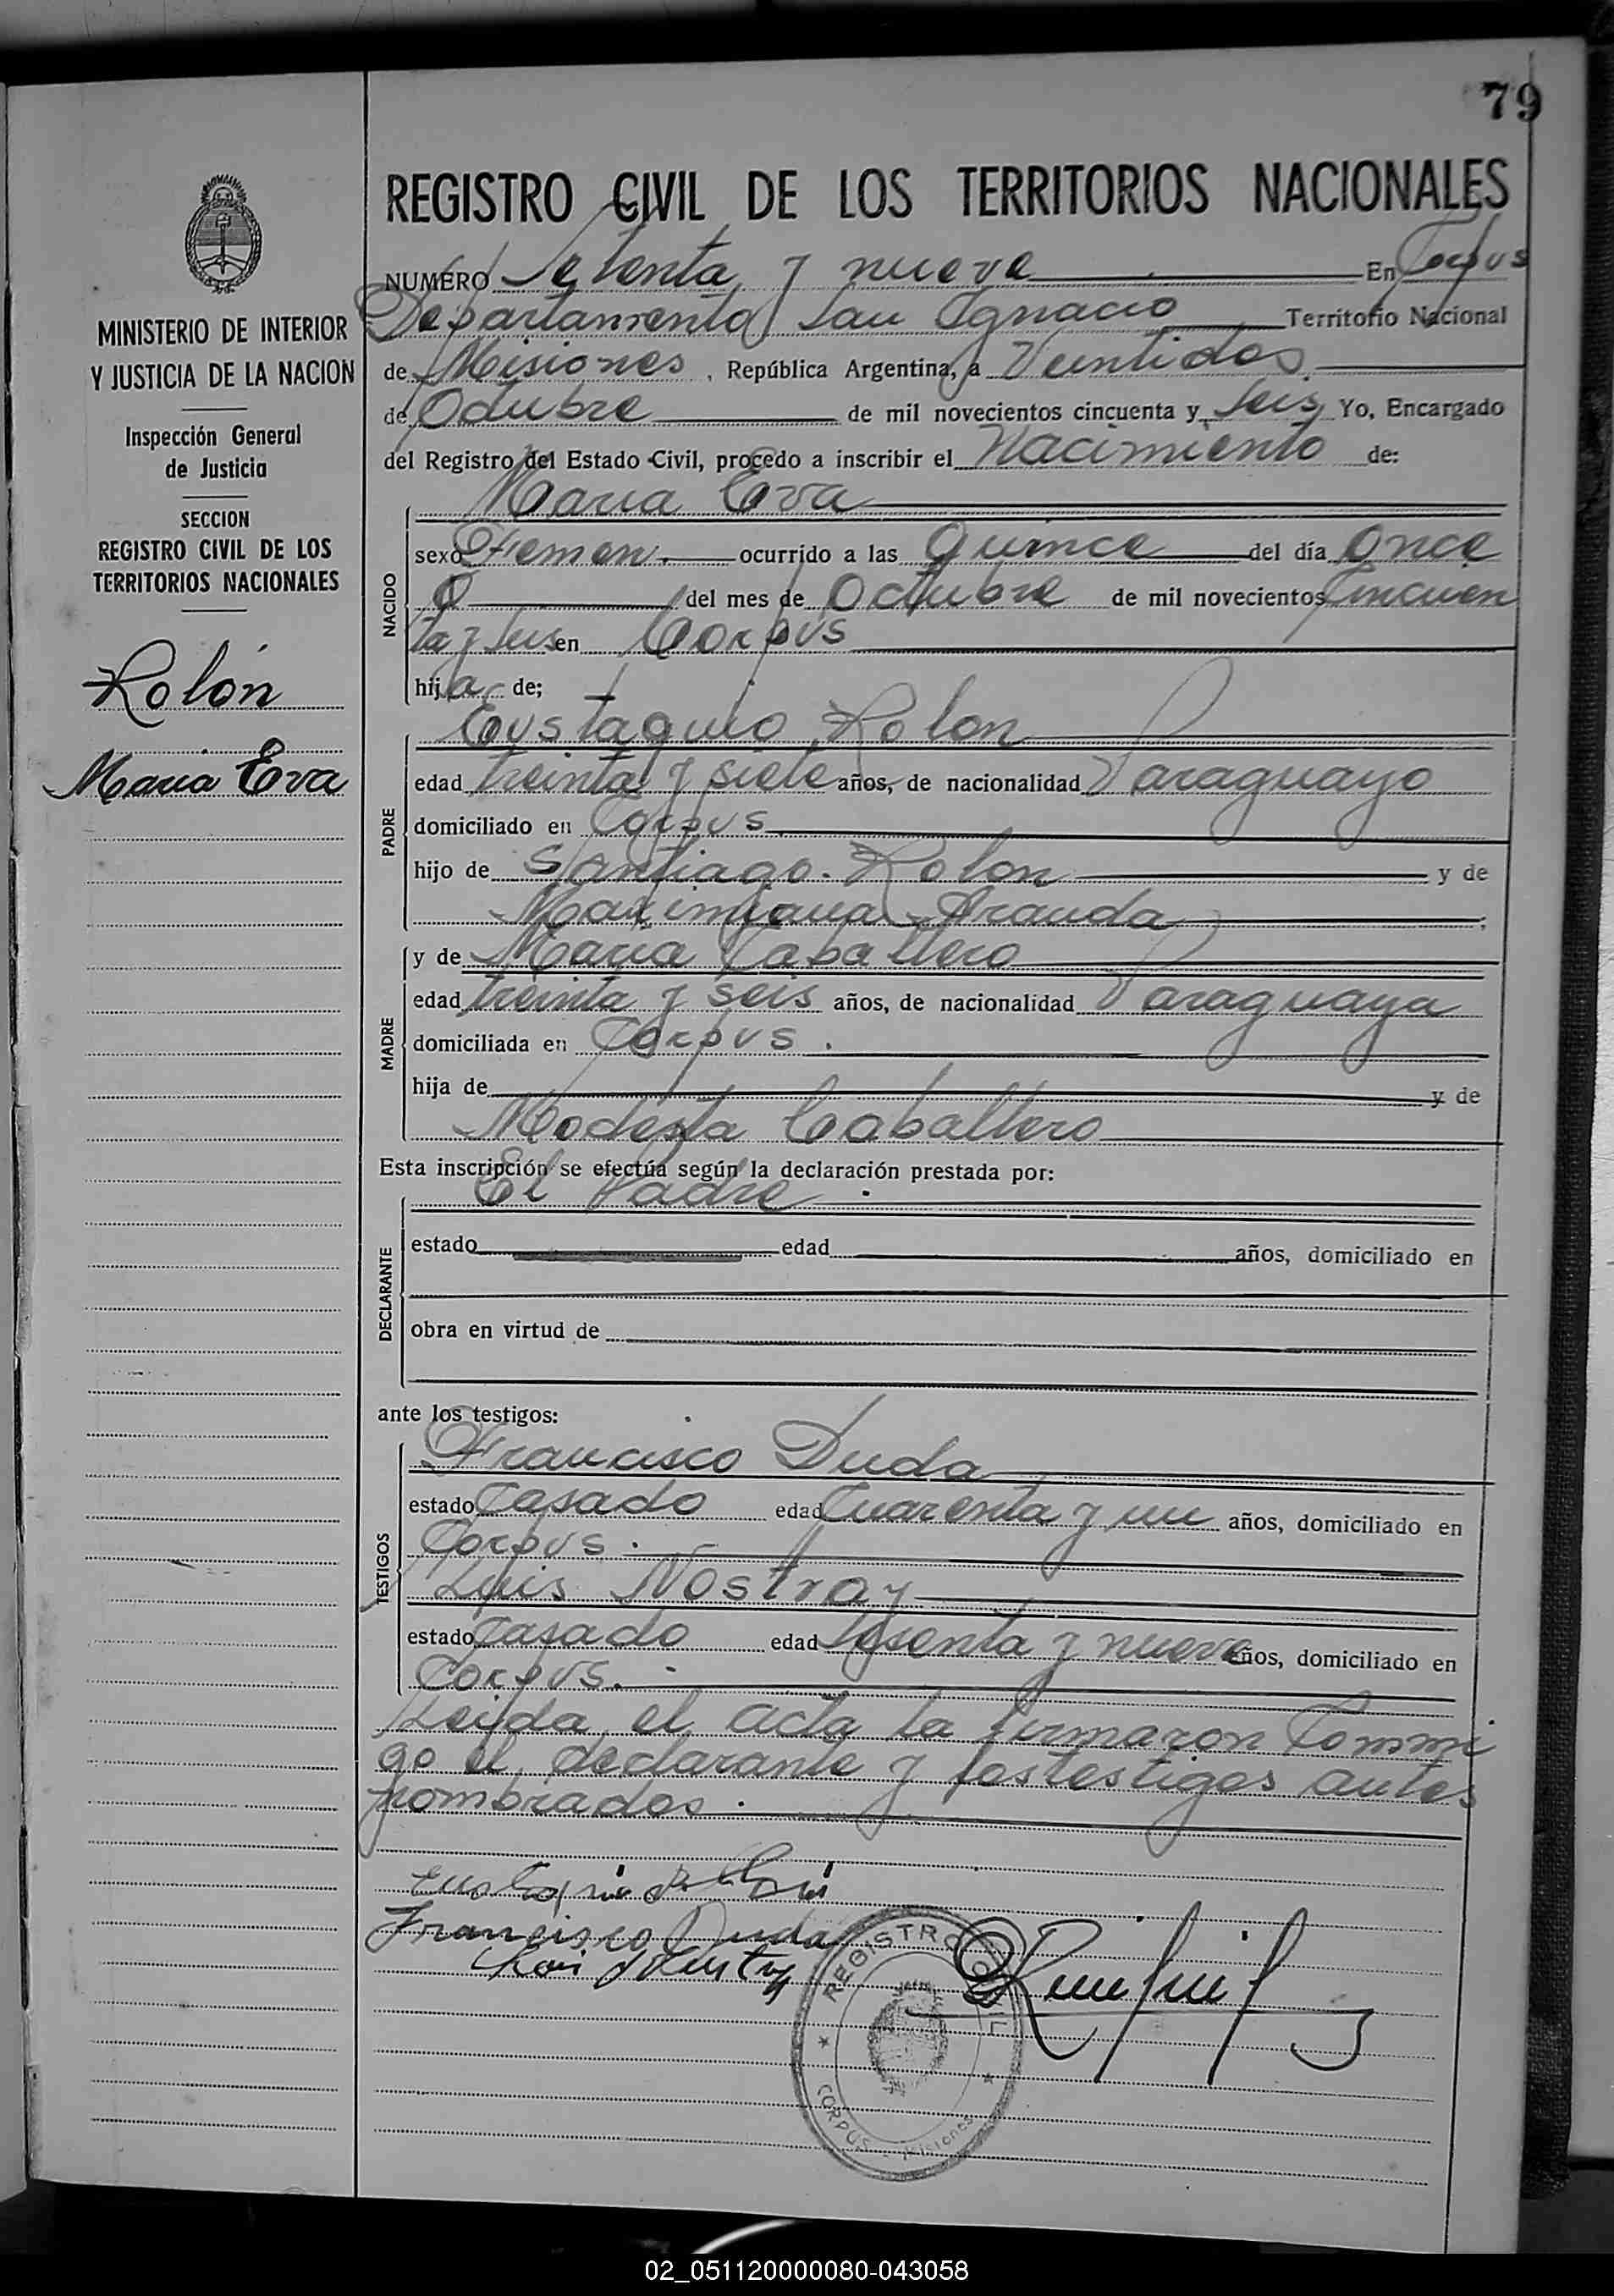 79
REGISTRO CIVIL DE LOS TERRITORIOS NACIONALES
NUMERO Setenta y nueve En Corpus
Departamento San Ignacio Territorio Nacional
de Misiones, República Argentina, a Veintidos
de Octubre de mil novecientos cincuenta y Seis, Yo, Encargado
del Registro del Estado Civil, procedo a inscribir el Nacimiento de:
MINISTERIO DE INTERIOR
Y JUSTICIA DE LA NACION
Inspección General
de Justicia
SECCION
REGISTRO CIVIL DE LOS
TERRITORIOS NACIONALES
Rolón
Maria Eva
NACIDO
Maria Eva
sexo Femen. ocurrido a las Quince del día Once
del mes de Octubre de mil novecientos Cincuen
ta y Seis en Corpus
hija de;
PADRE
Eustaquio Rolon
edad treinta y siete años, de nacionalidad Paraguayo
domiciliado en Corpus
hijo de Santiago Rolon y de
Maximiana Aranda
MADRE
y de Maria Caballero
edad treinta y seis años, de nacionalidad Paraguaya
domiciliada en Corpus.
hija de y de
Modesta Caballero
Esta inscripción se efectúa según la declaración prestada por:
DECLARANTE
El Padre.
estado edad años, domiciliado en
obra en virtud de
ante los testigos:
TESTIGOS
Francisco Duda
estado Casado edad Cuarenta y un años, domiciliado en
Corpus.
Luis Nostray
estado Casado edad Sesenta y nueve años, domiciliado en
Corpus.
Leida el acta la firmaron Conmi
go el declarante y los testigos antes
nombrados.
Francisco Duda
REGISTRO CIVIL
CORPUS - Misiones
02_051120000080-043058